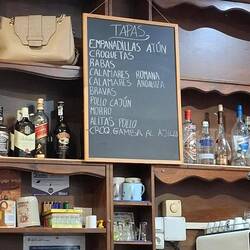 TAPAS
EMPANADILLAS ATÚN
CROQUETAS
RABAS
CALAMARES ROMANA
CALAMARES ANDALUZA
BRAVAS
POLLO CAJÚN
MORRO
ALITAS POLLO
CROQ. GAMBA AL AJILLO